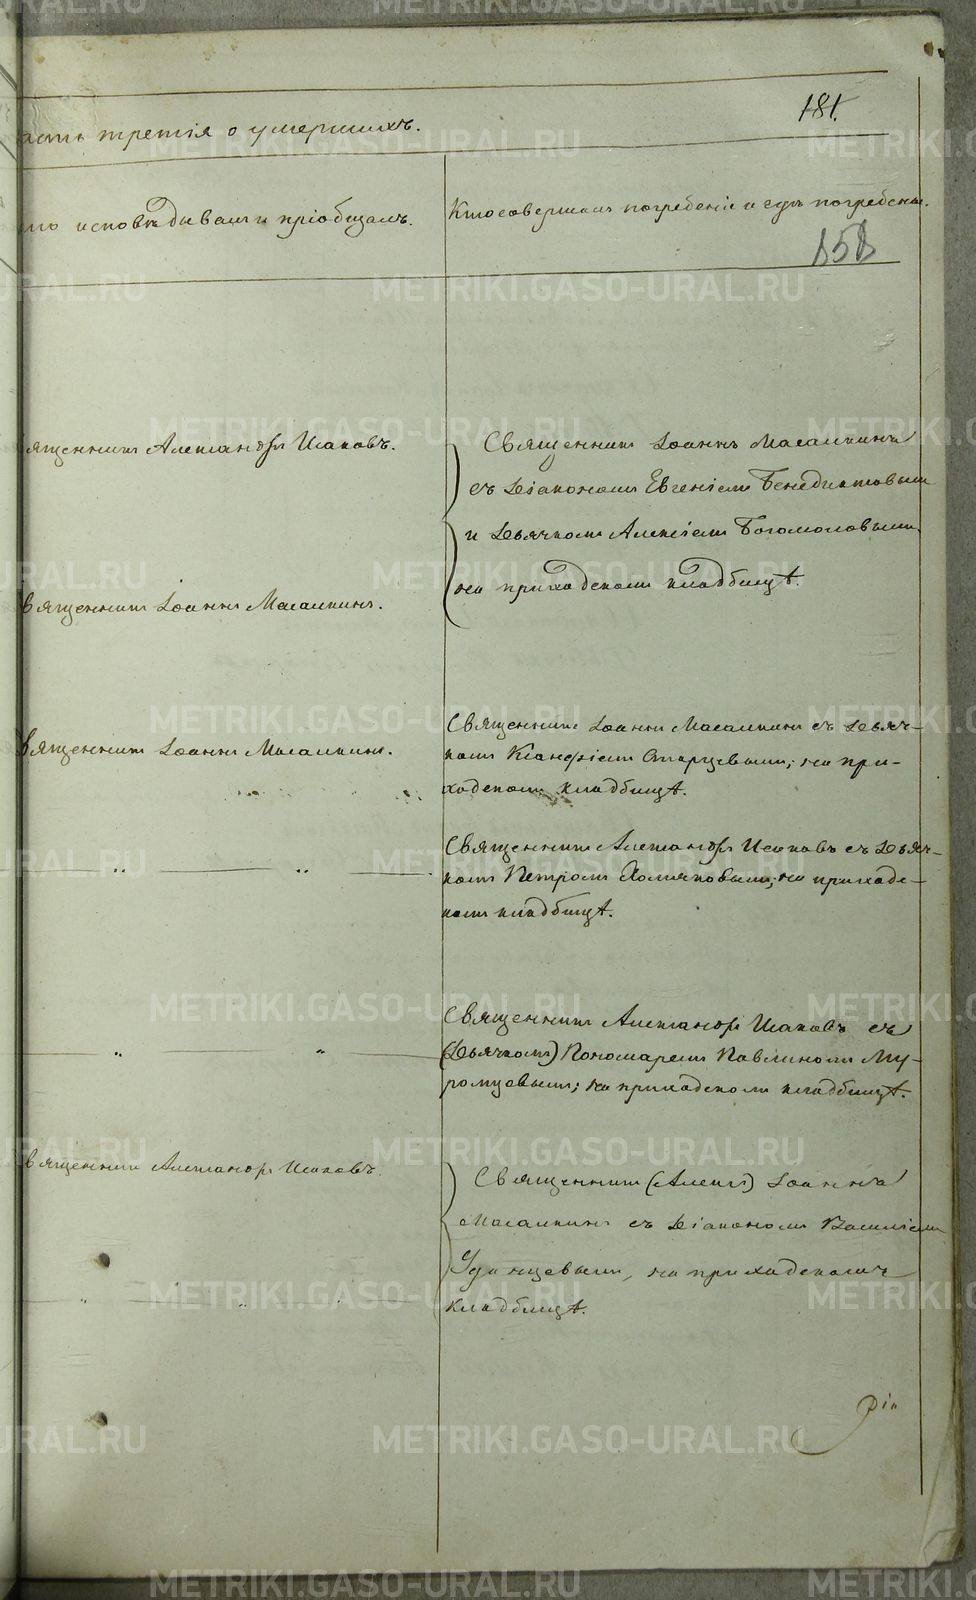 181.
асть третія о умершихъ.
то исповѣдывалъ и пріобщалъ.
Кто совершалъ погребеніе и гдѣ погребены.
158
вященникъ Александръ Исаковъ.
Священникъ Іоаннъ Масалкинъ
съ Діакономъ Евгеніемъ Бенедиктовымъ
и Дьячкомъ Алексіемъ Богомоловымъ
на приходскомъ кладбищѣ.
вященникъ Іоаннъ Масалкинъ.
вященникъ Іоаннъ Масалкинъ.
Священникъ Іоаннъ Масалкинъ съ Дьяч-
комъ Ксанфіемъ Старцевымъ; на при-
ходскомъ кладбищѣ.
— „ — „ —
Священникъ Александръ Исаковъ съ Дьяч-
комъ Петромъ Хомяковымъ; на приходс-
комъ кладбищѣ.
— „ — „ —
Священникъ Александръ Исаковъ съ
(Дьячкомъ) Пономаремъ Павлиномъ Му-
ромцовымъ; на приходскомъ кладбищѣ.
вященникъ Александръ Исаковъ.
Священникъ (Алекс) Іоаннъ
Масалкинъ съ Діакономъ Василіемъ
Удинцевымъ, на приходскомъ
кладбищѣ.
— „ — „ —
METRIKI.GASO-URAL.RU